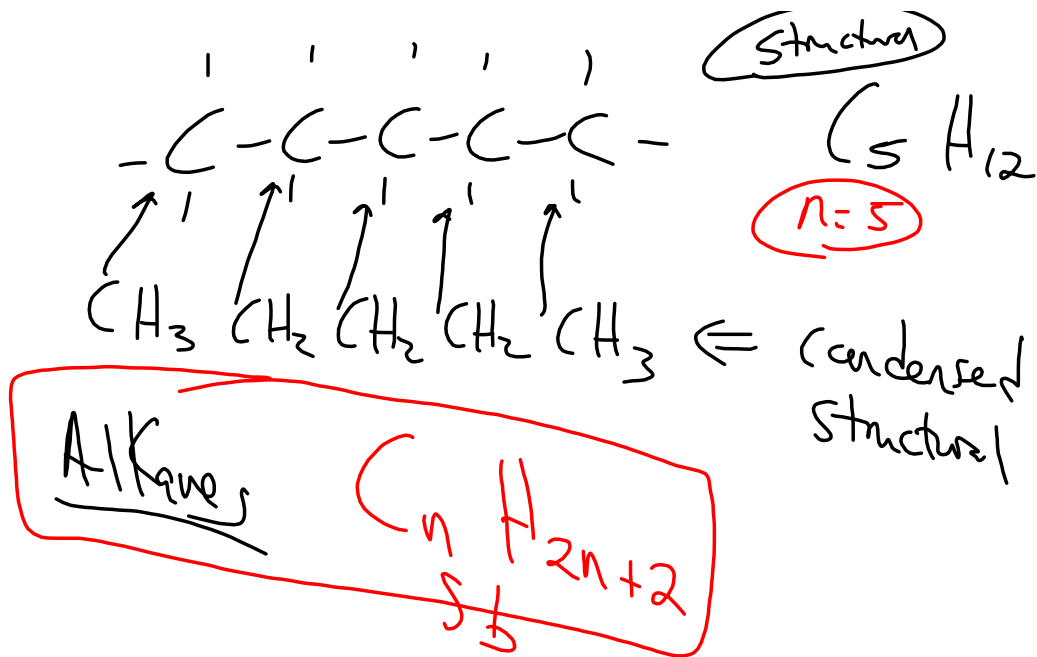 structural
- C - C - C - C - C -
C5 H12
n = 5
CH3 CH2 CH2 CH2 CH3 ⇐ condensed
structural
Alkanes
Cn H2n+2
5